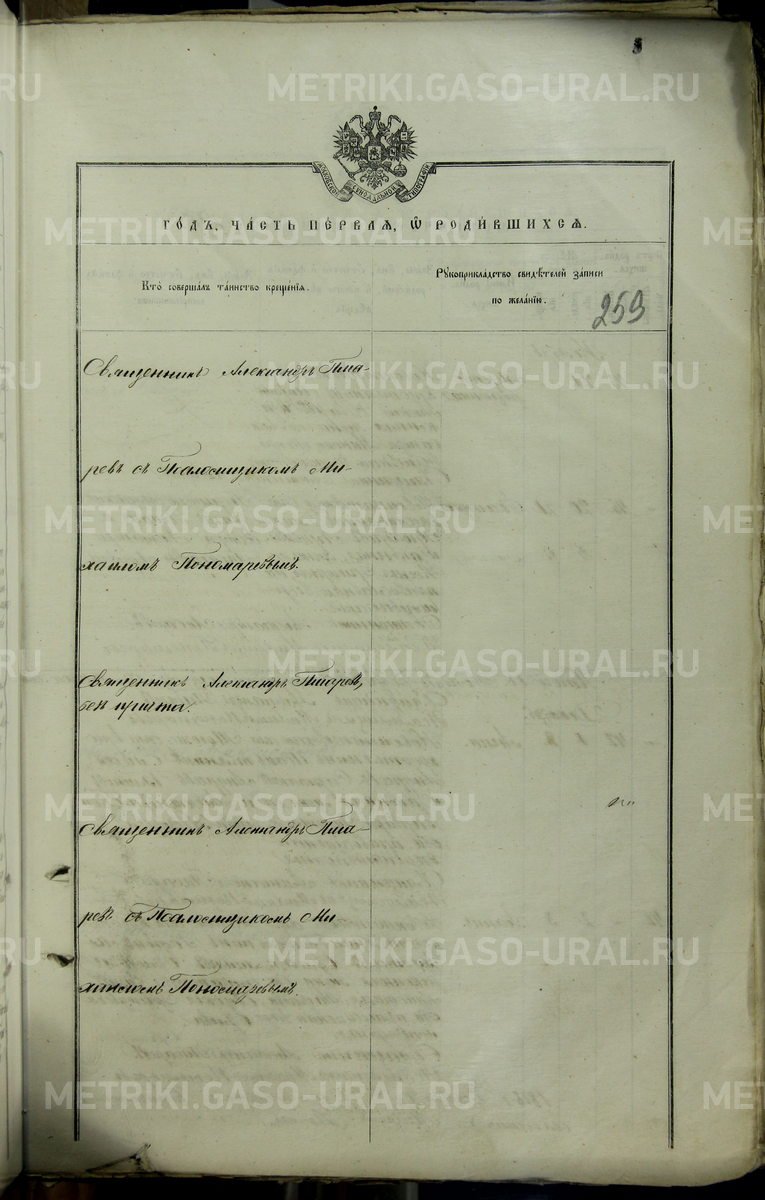 METRIKI.GASO-URAL.RU
МОСКОВСКОЙ СѴНОДАЛЬНОЙ ТИПОГРАФІИ
ГО́ДЪ, ЧА́СТЬ ПЕ́РВАѦ, Ѽ РОДИ́ВШИХСѦ.
Кто̀ соверша́лъ та́инство креще́нїѧ.
Рꙋкоприкла́дство свидѣ́телей за́писи
по жела́нїю.
259
Священникъ Александръ Писа-
ревъ съ Псаломщикомъ Ми-
хаиломъ Пономаревымъ.
Священникъ Александръ Писаревъ,
безъ причта.
Священникъ Александръ Писа-
ревъ съ Псаломщикомъ Ми-
хаиломъ Пономаревымъ.